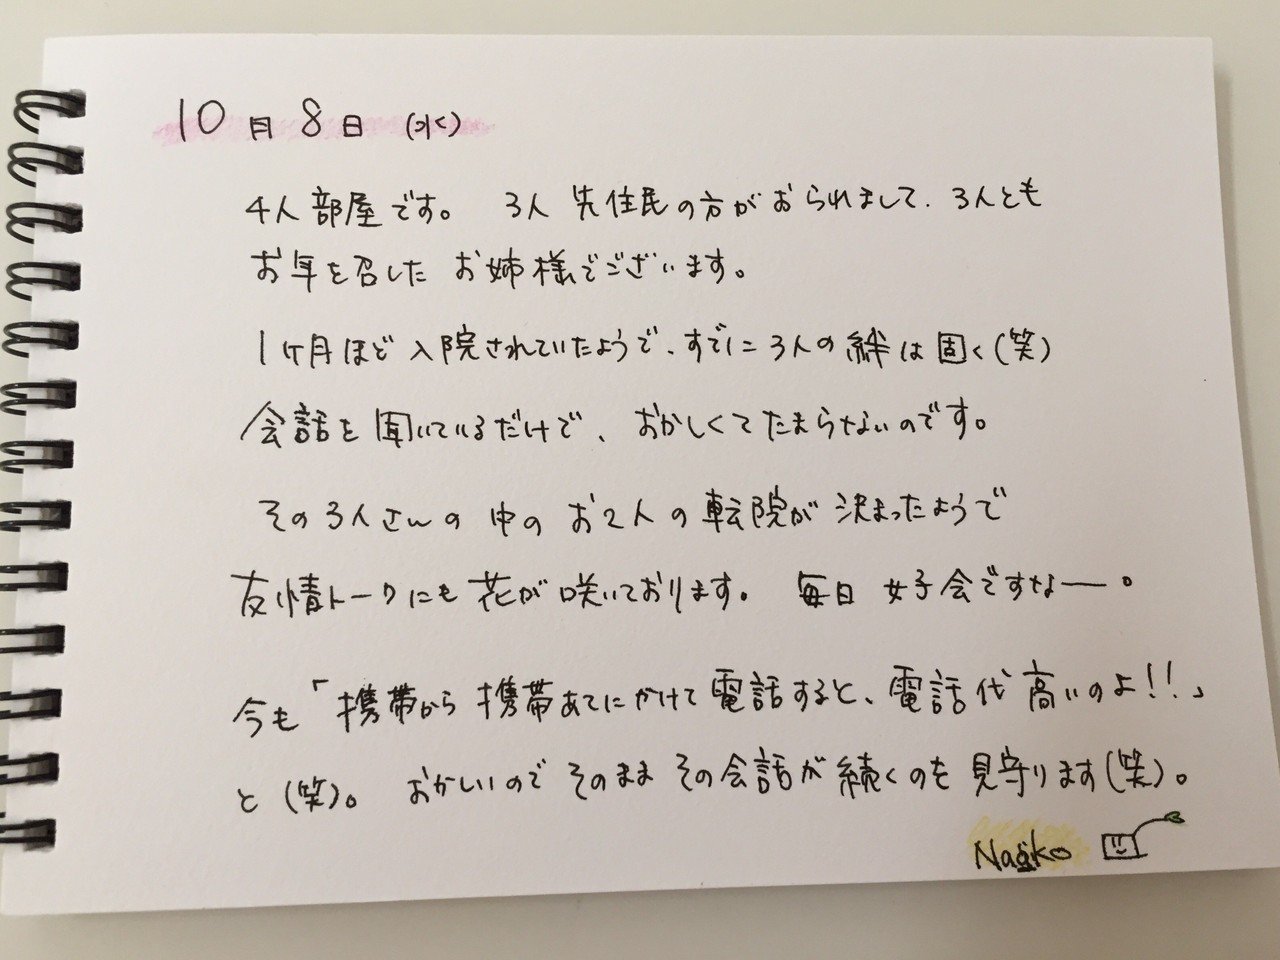 10月8日(水)
4人部屋です。 3人先住民の方がおられまして、3人とも
お年を召したお姉様でございます。
1ヶ月ほど入院されていたようで、すでに3人の絆は固く(笑)
会話を聞いているだけで、おかしくてたまらないのです。
その3人さんの中のお2人の転院が決まったようで
友情トークにも花が咲いております。 毎日女子会ですなー。
今も「携帯から携帯あてにかけて電話すると、電話代高いのよ!!」
と(笑)。 おかしいのでそのままその会話が続くのを見守ります(笑)。
Nagiko